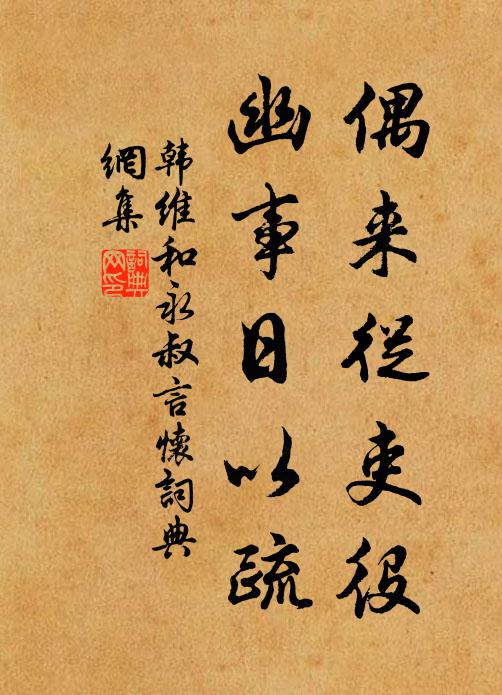 偶来從吏役
幽事日以疏
韩维和永叔言懷詞典
網集
詞典
网印